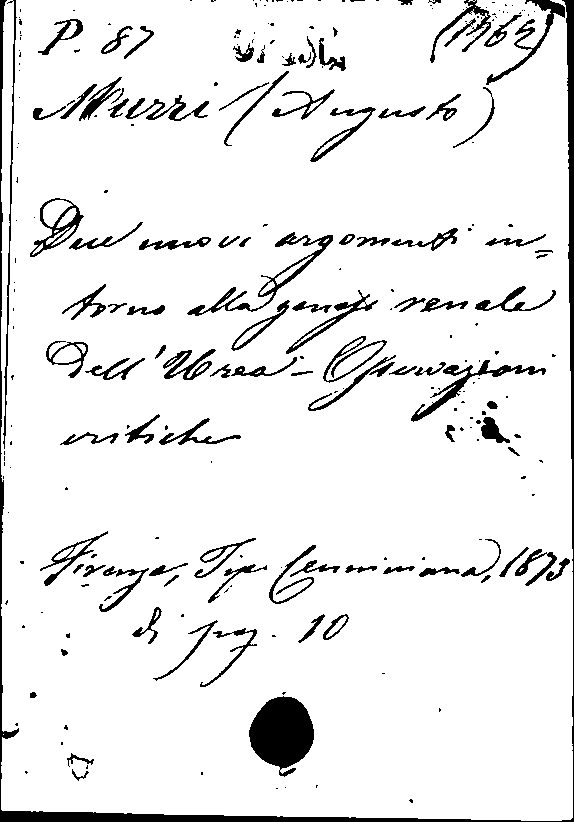 P. 87 (1462)
Murri (Augusto)
Due nuovi argomenti in=
torno alla genesi renale
Dell'Urea - Osservazioni
critiche
Firenze, Tip. Cenniniana, 1873
di pag. 10